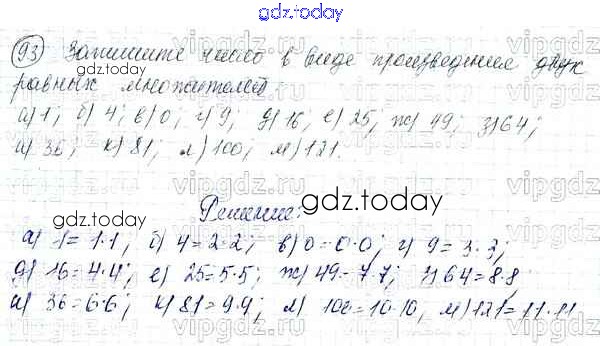 gdz.today
93 Запишите число в виде произведения двух
равных множителей
а) 1; б) 4; в) 0; г) 9; д) 16; е) 25; ж) 49; з) 64;
и) 36; к) 81; л) 100; м) 121.
Решение:
а) 1=1·1; б) 4=2·2; в) 0=0·0; г) 9=3·3;
д) 16=4·4; е) 25=5·5; ж) 49=7·7; з) 64=8·8
и) 36=6·6; к) 81=9·9; л) 100=10·10, м) 121=11·11
gdz.today
gdz.today
gdz.today
gdz.today
vipgdz.ru